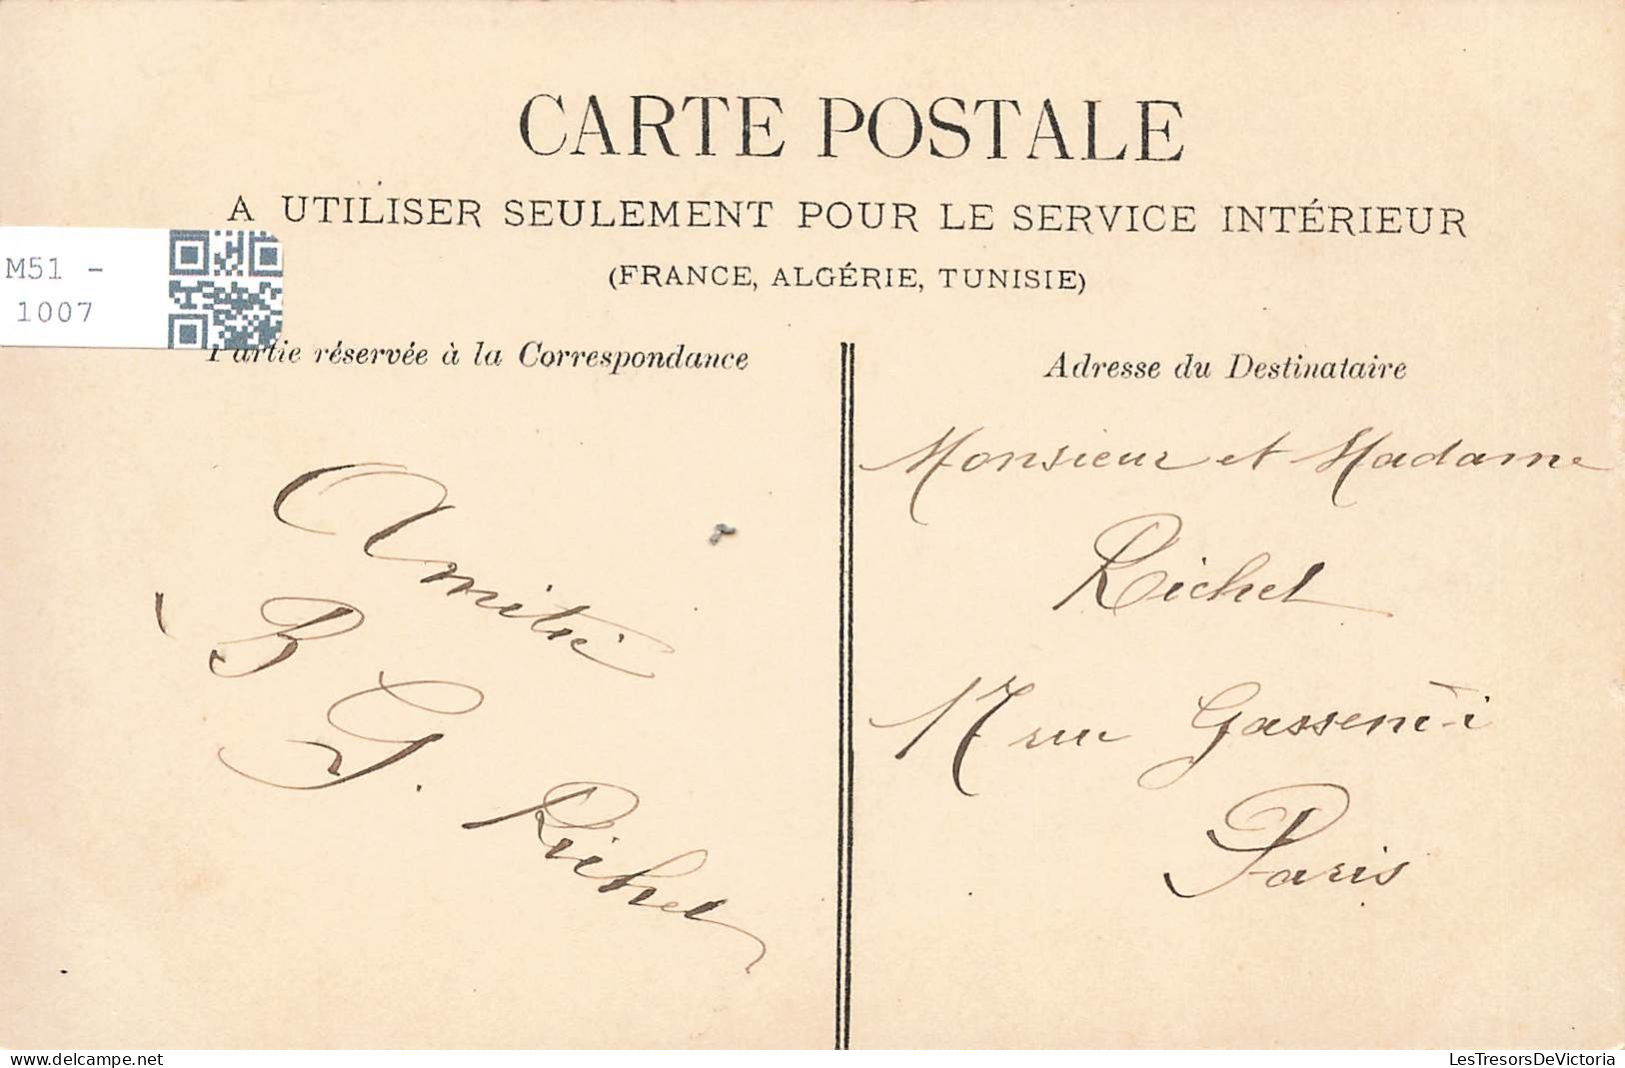 CARTE POSTALE
A UTILISER SEULEMENT POUR LE SERVICE INTÉRIEUR
(FRANCE, ALGÉRIE, TUNISIE)
M51 -
1007
Partie réservée à la Correspondance
Amitié
B
G. Richel
Adresse du Destinataire
Monsieur et Madame
Richel
17 rue Gassendi
Paris
delcampe.net
LesTresorsDeVictoria